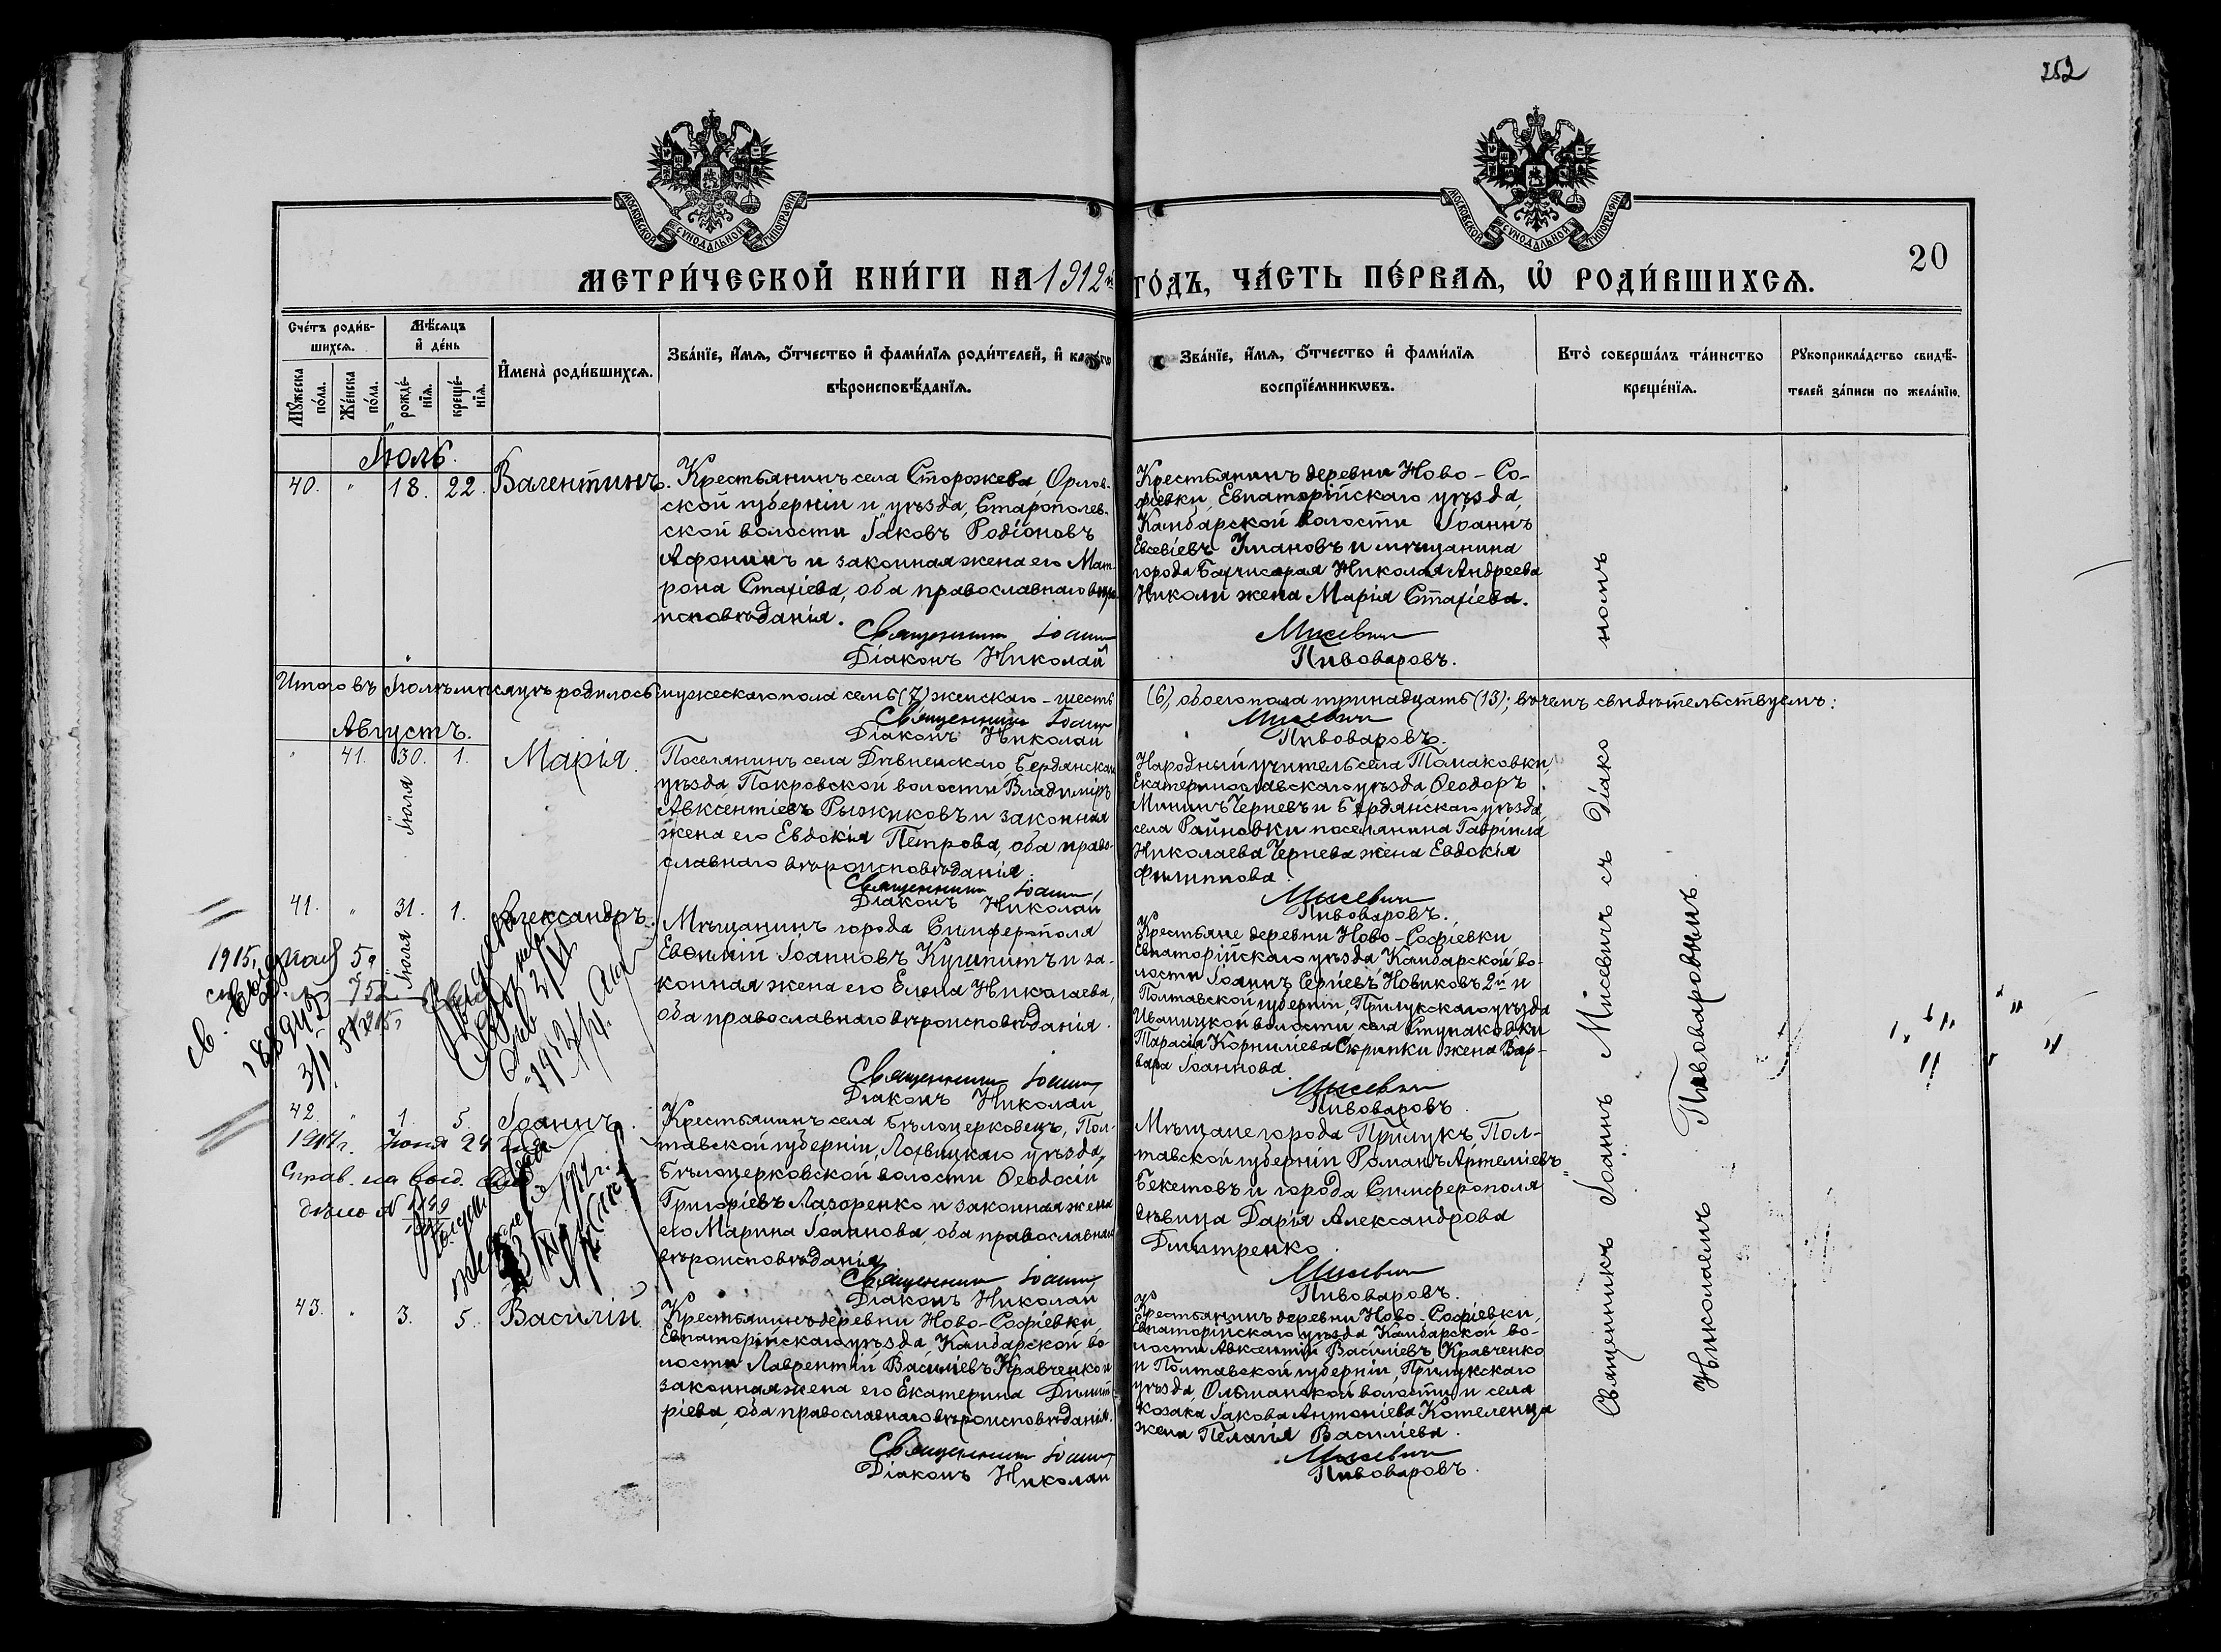 252
МОСКОВСКОЙ СѴНОДАЛЬНОЙ ТИПОГРАФІИ
МОСКОВСКОЙ СѴНОДАЛЬНОЙ ТИПОГРАФІИ
20
МЕТРИ́ЧЕСКОЙ КНИ́ГИ НА 1912й ГО́ДЪ, ЧА́СТЬ ПЕ́РВАѦ, Ѡ҆ РОДИ́ВШИХСѦ.
Сче́тъ роди́вшихсѧ.
Мꙋ́жеска по́ла.
Же́нска по́ла.
Мѣ́сѧцъ и҆ де́нь
рожде́нїѧ.
креще́нїѧ.
И҆мена̀ роди́вшихсѧ.
Зва́нїе, и҆́мѧ, ѻ҆́тчество и҆ фами́лїѧ роди́телей, и҆ како́гѡ
вѣроисповѣ́данїѧ.
Зва́нїе, и҆́мѧ, ѻ҆́тчество и҆ фами́лїѧ
воспрїе́мникѡвъ.
Кто̀ соверша́лъ та́инство
креще́нїѧ.
Рꙋкоприкла́дство свидѣ́-
телей за́писи по жела́нїю.
Іюль.
40. " 18. 22. Валентинъ.
Крестьянинъ села Сторожева Орлов-
ской губерніи и уѣзда, Старополев-
ской волости Іаковъ Родіоновъ
Афонинъ и законная жена его Мат-
рона Стахіева, оба православнаго вѣро-
исповѣданія.
Священникъ Іоаннъ
Діаконъ Николай
Крестьянинъ деревни Ново-Со-
фіевки, Евпаторійскаго уѣзда,
Камбарской волости Іоаннъ
Евсевіевъ Умановъ и мѣщанина
города Бахчисарая Николая Андреева
Николи жена Марія Стахіева.
Мисевичъ
Пивоваровъ.
Итого въ Іюлѣ мѣсяцѣ родилось: мужескаго пола семь (7) женскаго - шесть
(6), обоего пола тринадцать (13); въ чемъ свидѣтельствуемъ:
Священникъ Іоаннъ
Діаконъ Николай
Мисевичъ
Пивоваровъ.
Августъ.
" 41. 30. 1. Марія
Іюля
Поселянинъ села Дѣвненскаго, Бердянскаго
уѣзда, Покровской волости Владиміръ
Авксентіевъ Рыжиковъ и законная
жена его Евдокія Петрова, оба право-
славнаго вѣроисповѣданія.
Священникъ Іоаннъ
Діаконъ Николай
Народный учитель села Томаковки,
Екатеринославскаго уѣзда Ѳеодоръ
Мининъ Черневъ и Бердянскаго уѣзда
села Райновки поселянина Гавріила
Николаева Чернева жена Евдокія
Филиппова
Мисевичъ
Пивоваровъ.
41. " 31. 1. Александръ.
Іюля
Мѣщанинъ города Симферополя
Евѳимій Іоанновъ Кушпитъ и за-
конная жена его Елена Николаева,
оба православнаго вѣроисповѣданія.
Священникъ Іоаннъ
Діаконъ Николай
Крестьяне деревни Ново-Софіевки
Евпаторійскаго уѣзда Камбарской во-
лости Іоаннъ Сергіевъ Новиковъ 2й и
Полтавской губерніи, Прилукскаго уѣзда
Иваницкой волости села Ступаковки
Тарасія Корниліева Скрипки жена Вар-
вара Іоаннова
Мисевичъ
Пивоваровъ.
1915
752
42. " 1. 5. Іоаннъ.
1917г. Іюня 24 дня
Справ. на воен.
дѣло №
Крестьянинъ села Бѣлоцерковецъ, Пол-
тавской губерніи, Лохвицкаго уѣзда,
Бѣлоцерковской волости Ѳеодосій
Григоріевъ Лазоренко и законная жена
его Марина Іоаннова, оба православнаго
вѣроисповѣданія.
Священникъ Іоаннъ
Діаконъ Николай
Мѣщане города Прилукъ, Пол-
тавской губерніи Романъ Артеміевъ
Бекетовъ и города Симферополя
дѣвица Дарія Александрова
Дмитренко
Мисевичъ
Пивоваровъ.
43. " 3. 5. Василій.
Крестьянинъ деревни Ново-Софіевки,
Евпаторійскаго уѣзда, Камбарской во-
лости Лаврентій Василіевъ Кравченко и
законная жена его Екатерина Димит-
ріева, оба православнаго вѣроисповѣданія.
Священникъ Іоаннъ
Діаконъ Николай
Крестьянинъ деревни Ново-Софіевки,
Евпаторійскаго уѣзда Камбарской во-
лости Авксентій Василіевъ Кравченко
и Полтавской губерніи, Прилукскаго
уѣзда, Ольшанской волости и села
козака Іакова Антоніева Котеленца
жена Пелагія Василіева.
Мисевичъ
Пивоваровъ.
Священникъ Іоаннъ Мисевичъ съ Діакономъ
Николаемъ Пивоваровымъ.